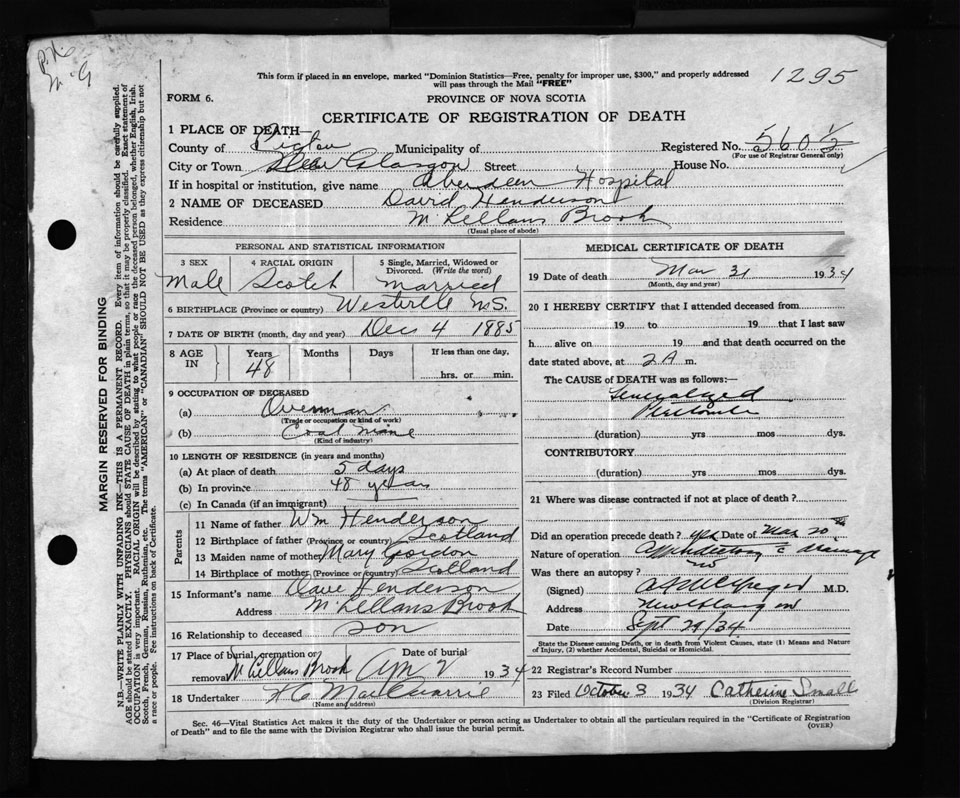 P.N.
M. G
1295
This form if placed in an envelope, marked "Dominion Statistics—Free, penalty for improper use, $300," and properly addressed
will pass through the Mail "FREE"
FORM 6.
PROVINCE OF NOVA SCOTIA
CERTIFICATE OF REGISTRATION OF DEATH
1 PLACE OF DEATH—
County of Pictou Municipality of Registered No. 560½
(For use of Registrar General only)
City or Town New Glasgow Street House No.
If in hospital or institution, give name Aberdeen Hospital
2 NAME OF DECEASED David Henderson
Residence McLellans Brook
(Usual place of abode)
PERSONAL AND STATISTICAL INFORMATION
3 SEX 4 RACIAL ORIGIN 5 Single, Married, Widowed or
Divorced. (Write the word)
Male Scotch Married
6 BIRTHPLACE (Province or country) Westville N.S.
7 DATE OF BIRTH (month, day and year) Dec 4 1885
8 AGE IN Years Months Days If less than one day,
48 hrs. or min.
9 OCCUPATION OF DECEASED
(a) Overman
(Trade or occupation or kind of work)
(b) Coal Mine
(Kind of industry)
10 LENGTH OF RESIDENCE (in years and months)
(a) At place of death 5 days
(b) In province 48 years
(c) In Canada (if an immigrant)
Parents
11 Name of father Wm Henderson
12 Birthplace of father (Province or country) Scotland
13 Maiden name of mother Mary Gordon
14 Birthplace of mother (Province or country) Scotland
15 Informant's name Dave Henderson
Address McLellans Brook
16 Relationship to deceased son
17 Place of burial, cremation or removal McLellans Brook Date of burial Apr 2 1934
18 Undertaker H C MacQuarrie
(Name and address)
MEDICAL CERTIFICATE OF DEATH
19 Date of death Mar 31 1934
(Month, day and year)
20 I HEREBY CERTIFY that I attended deceased from
19 to 19 that I last saw
h alive on 19 and that death occurred on the
date stated above, at 2 A m.
The CAUSE of DEATH was as follows:—
Generalized
(duration) yrs mos dys.
CONTRIBUTORY
(duration) yrs mos dys.
21 Where was disease contracted if not at place of death?
Did an operation precede death? yes Date of Mar 20
Nature of operation
Was there an autopsy? no
(Signed) M.D.
Address New Glasgow
Date Sept 29/34
State the Disease causing Death, or in death from Violent Causes, state (1) Means and Nature
of Injury, (2) whether Accidental, Suicidal or Homicidal.
22 Registrar's Record Number
23 Filed October 3 1934 Catherine Small
(Division Registrar)
Sec. 46—Vital Statistics Act makes it the duty of the Undertaker or person acting as Undertaker to obtain all the particulars required in the "Certificate of Registration
of Death" and to file the same with the Division Registrar who shall issue the burial permit.
(OVER)
MARGIN RESERVED FOR BINDING
N.B.—WRITE PLAINLY WITH UNFADING INK—THIS IS A PERMANENT RECORD. Every item of information should be carefully supplied.
AGE should be stated EXACTLY. PHYSICIANS should STATE CAUSE OF DEATH in plain terms, so that it may be properly classified. Exact statement of
OCCUPATION is very important. RACIAL ORIGIN will be described by stating to what people or race the deceased person belonged, whether English, Irish,
Scotch, French, German, Russian, Ruthenian, etc. The terms "AMERICAN" or "CANADIAN" SHOULD NOT BE USED as they express citizenship but not
a race or people. Fee instructions on back of Certificate.